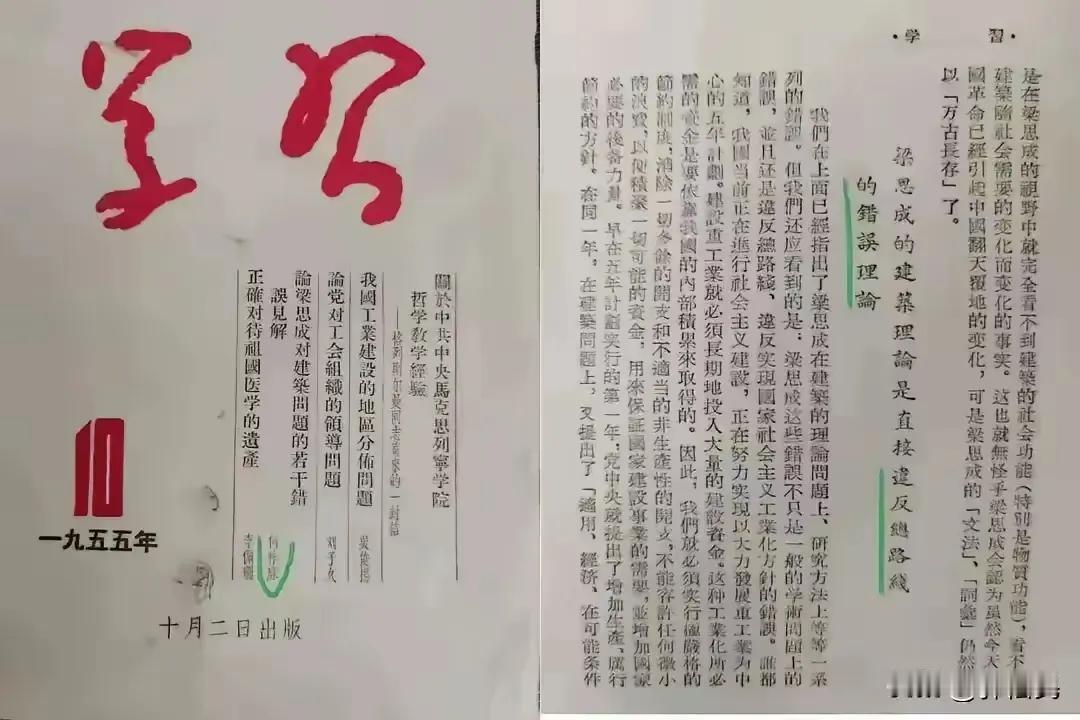 学习
關於中共中央馬克思列寧学院
哲学教学經驗
我國工業建設的地區分佈問題
論党对工会組織的領導問題 刘子久
論梁思成对建築問題的若干錯
誤見解
正確对待祖國医学的遺產
10
一九五五年
十月二日出版
·学 習·
是在梁思成的視野中就完全看不到建築的社会功能(特别是物質功能),看不
建築隨社会需要的变化而变化的事实。這也就無怪乎梁思成会認为虽然今天
國革命已經引起中國翻天覆地的变化,可是梁思成的「文法」、「詞彙」仍然
以「万古長存」了。
梁思成的建築理論是直接違反總路綫
的錯誤理論
我們在上面已經指出了梁思成在建築的理論問題上、研究方法上等等一系
列的錯誤。但我們还应看到的是:梁思成這些錯誤不只是一般的学術問題上的
錯誤,並且还是違反總路綫、違反实現國家社会主义工業化方針的錯誤。誰都
知道,我國当前正在進行社会主义建設,正在努力实現以大力發展重工業为中
心的五年計劃。建設重工業就必須長期地投入大量的建設資金。这种工業化所必
需的資金是要依靠我國的內部積累來取得的。因此,我們就必須实行極嚴格的
節約制度,消除一切多餘的開支和不適当的非生產性的開支,不能容許任何微小
的浪費,以便積聚一切可能的資金,用來保証國家建設事業的需要,並增加國家
必要的後备力量。早在五年計劃实行的第一年,党中央就提出了增加生產、厲行
節約的方針。在同一年,在建築問題上,又提出了「適用、經济、在可能条件